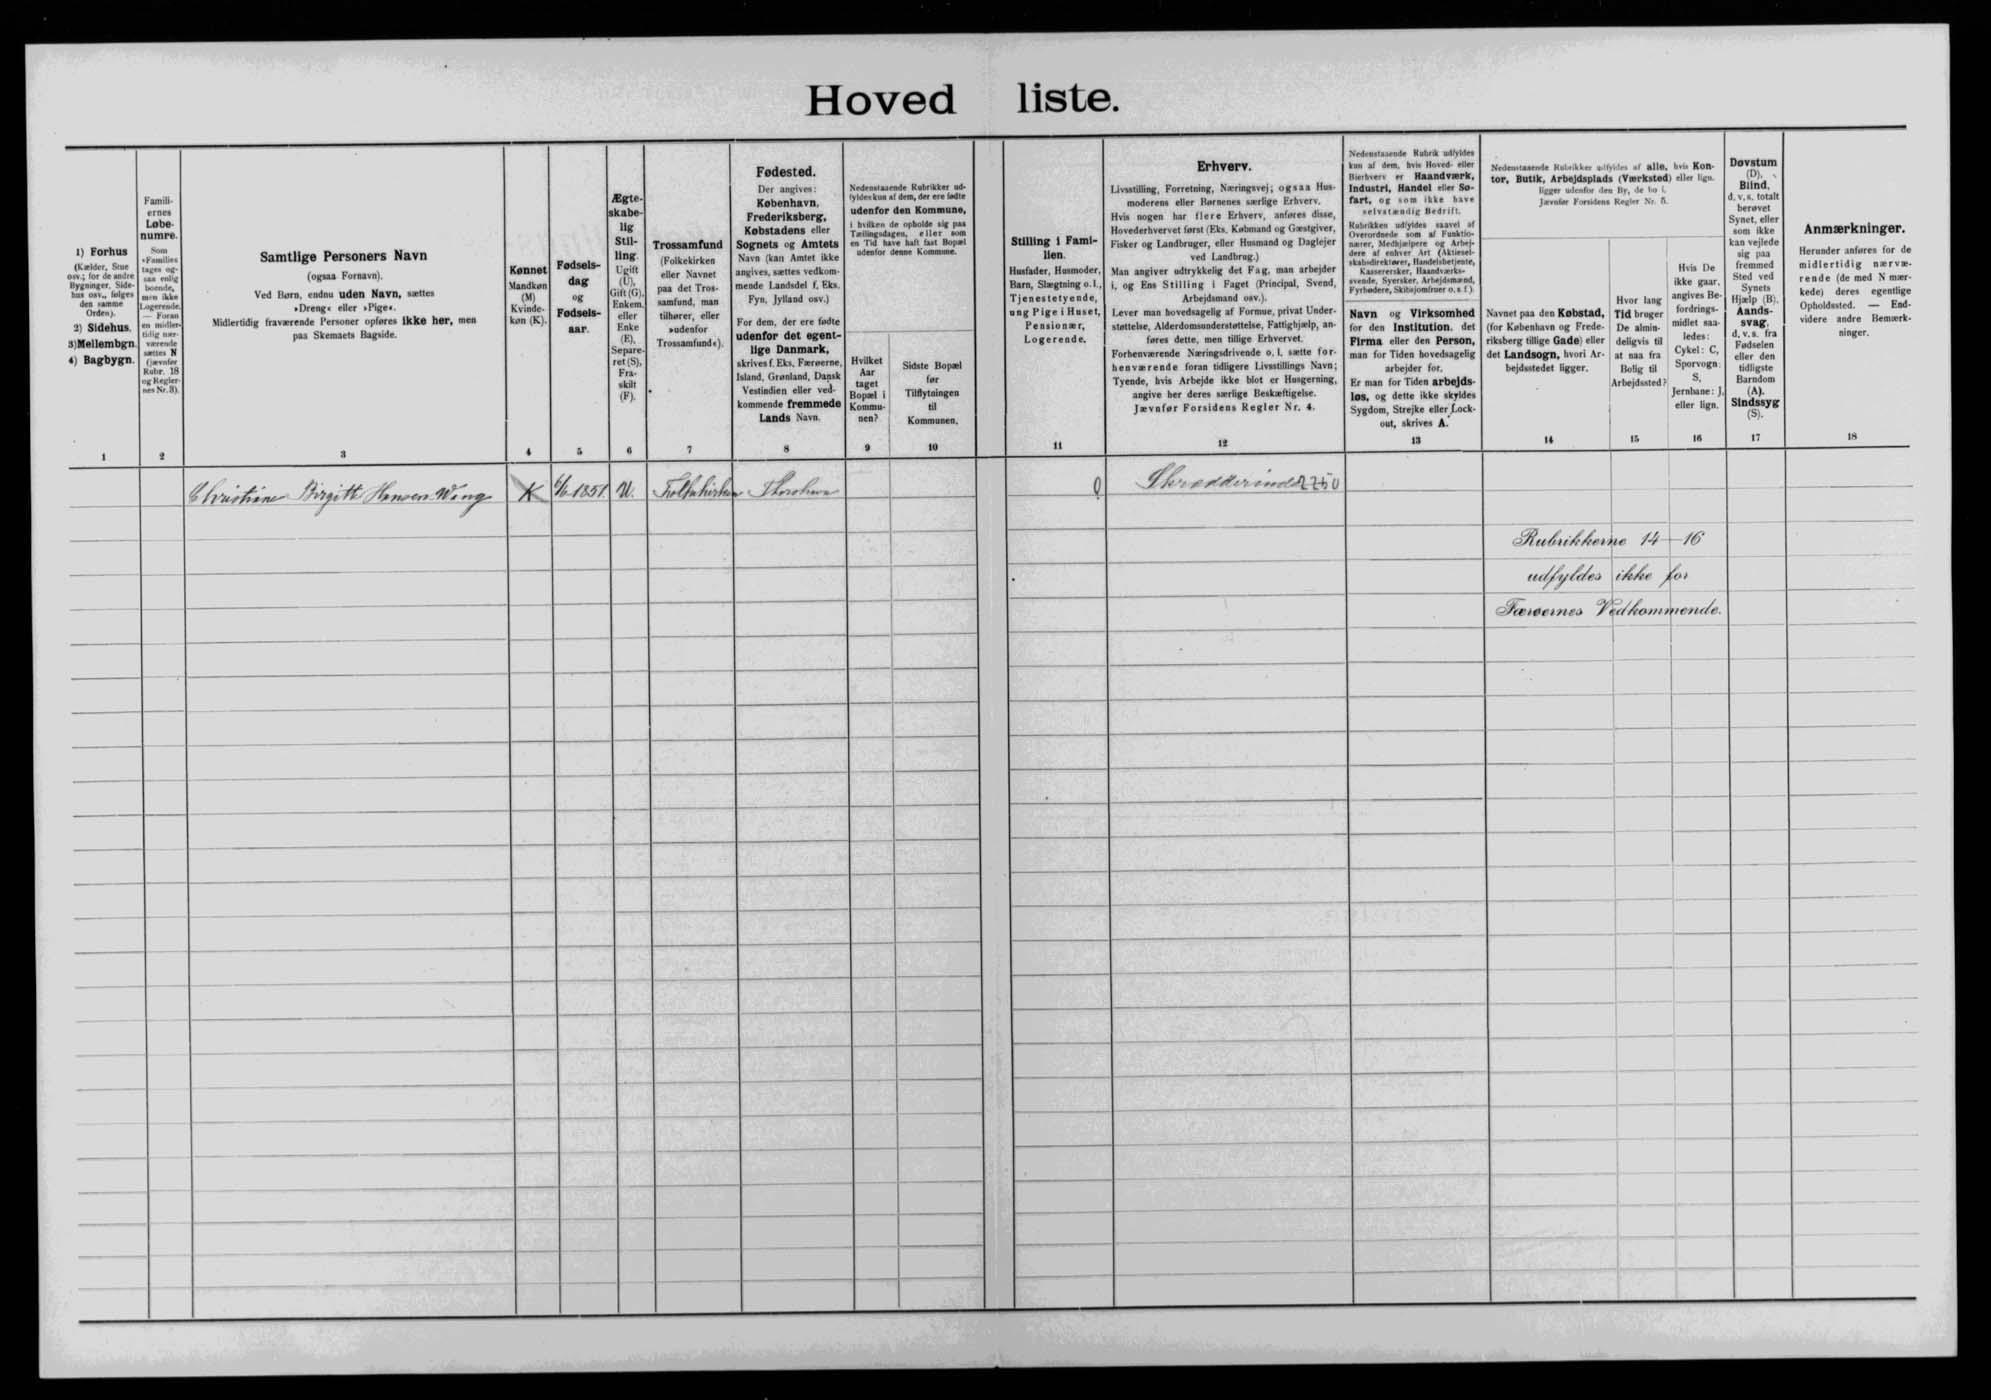 Hoved liste.
1) Forhus
(Kælder, Stue
osv.; for de andre
Bygninger, Side-
hus osv., følges
den samme
Orden).
2) Sidehus.
3) Mellembgn.
4) Bagbygn.
1
Famili-
ernes
Løbe-
numre.
Som
»Familie«
tages og-
saa enlig
boende,
men ikke
Logerende.
— Foran
en midler-
tidig nær-
værende
sættes N
(jævnfør
Rubr. 18
og Regler-
nes Nr. 3).
2
Samtlige Personers Navn
(ogsaa Fornavn).
Ved Børn, endnu uden Navn, sættes
»Dreng« eller »Pige«.
Midlertidig fraværende Personer opføres ikke her, men
paa Skemaets Bagside.
3
Kønnet
Mandkøn
(M)
Kvinde-
køn (K).
4
Fødsels-
dag
og
Fødsels-
aar.
5
Ægte-
skabe-
lig
Stil-
ling.
Ugift
(U),
Gift (G),
Enkem.
eller
Enke
(E),
Separe-
ret (S),
Fra-
skilt
(F).
6
Trossamfund
(Folkekirken
eller Navnet
paa det Tros-
samfund, man
tilhører, eller
»udenfor
Trossamfund«).
7
Fødested.
Der angives:
København,
Frederiksberg,
Købstadens eller
Sognets og Amtets
Navn (kan Amtet ikke
angives, sættes vedkom-
mende Landsdel f. Eks.
Fyn, Jylland osv.)
For dem, der ere fødte
udenfor det egent-
lige Danmark,
skrives f. Eks. Færøerne,
Island, Grønland, Dansk
Vestindien eller ved-
kommende fremmede
Lands Navn.
8
Nedenstaaende Rubrikker ud-
fyldes kun af dem, der ere fødte
udenfor den Kommune,
i hvilken de opholde sig paa
Tællingsdagen, eller som
en Tid have haft fast Bopæl
udenfor denne Kommune.
Hvilket
Aar
taget
Bopæl i
Kommu-
nen?
9
Sidste Bopæl
før
Tilflytningen
til
Kommunen.
10
Stilling i Fami-
lien.
Husfader, Husmoder,
Barn, Slægtning o. l.,
Tjenestetyende,
ung Pige i Huset,
Pensionær,
Logerende.
11
Erhverv.
Livsstilling, Forretning, Næringsvej; ogsaa Hus-
moderens eller Børnenes særlige Erhverv.
Hvis nogen har flere Erhverv, anføres disse,
Hovederhvervet først (Eks. Købmand og Gæstgiver,
Fisker og Landbruger, eller Husmand og Daglejer
ved Landbrug.)
Man angiver udtrykkelig det Fag, man arbejder
i, og Ens Stilling i Faget (Principal, Svend,
Arbejdsmand osv.).
Lever man hovedsagelig af Formue, privat Under-
støttelse, Alderdomsunderstøttelse, Fattighjælp, an-
føres dette, men tillige Erhvervet.
Forhenværende Næringsdrivende o. l. sætte for-
henværende foran tidligere Livsstillings Navn;
Tyende, hvis Arbejde ikke blot er Husgerning,
angive her deres særlige Beskæftigelse.
Jævnfør Forsidens Regler Nr. 4.
12
Nedenstaaende Rubrik udfyldes
kun af dem, hvis Hoved- eller
Bierhverv er Haandværk,
Industri, Handel eller Sø-
fart, og som ikke have
selvstændig Bedrift.
Rubrikken udfyldes saavel af
Overordnede som af Funktio-
nærer, Medhjælpere og Arbej-
dere af enhver Art (Aktiesel-
skabsdirektører, Handelsbetjente,
Kassererske, Haandværks-
svende, Syersker, Arbejdsmænd,
Fyrbødere, Skibsjomfruer o. s. f.).
Navn og Virksomhed
for den Institution, det
Firma eller den Person,
man for Tiden hovedsagelig
arbejder for.
Er man for Tiden arbejds-
løs, og dette ikke skyldes
Sygdom, Strejke eller Lock-
out, skrives A.
13
Nedenstaaende Rubrikker udfyldes af alle, hvis Kon-
tor, Butik, Arbejdsplads (Værksted) eller lign.
ligger udenfor den By, de bo i.
Jævnfør Forsidens Regler Nr. 5.
Navnet paa den Købstad,
(for København og Frede-
riksberg tillige Gade) eller
det Landsogn, hvori Ar-
bejdsstedet ligger.
14
Hvor lang
Tid bruger
De almin-
deligvis til
at naa fra
Bolig til
Arbejdssted?
15
Hvis De
ikke gaar,
angives Be-
fordrings-
midlet saa-
ledes:
Cykel: C,
Sporvogn:
S,
Jernbane: J,
eller lign.
16
Døvstum
(D).
Blind,
d. v. s. totalt
berøvet
Synet, eller
som ikke
kan vejlede
sig paa
fremmed
Sted ved
Synets
Hjælp (B).
Aands-
svag,
d. v. s. fra
Fødselen
eller den
tidligste
Barndom
(A).
Sindssyg
(S).
17
Anmærkninger.
Herunder anføres for de
midlertidig nærvæ-
rende (de med N mær-
kede) deres egentlige
Opholdssted. — End-
videre andre Bemærk-
ninger.
18
Christiane Birgitte Hansen Wang K 6/6 1851. U. Folkekirken Thorshavn 0 Skrædderinde 2750
Rubrikkerne 14—16
udfyldes ikke for
Færøernes Vedkommende.